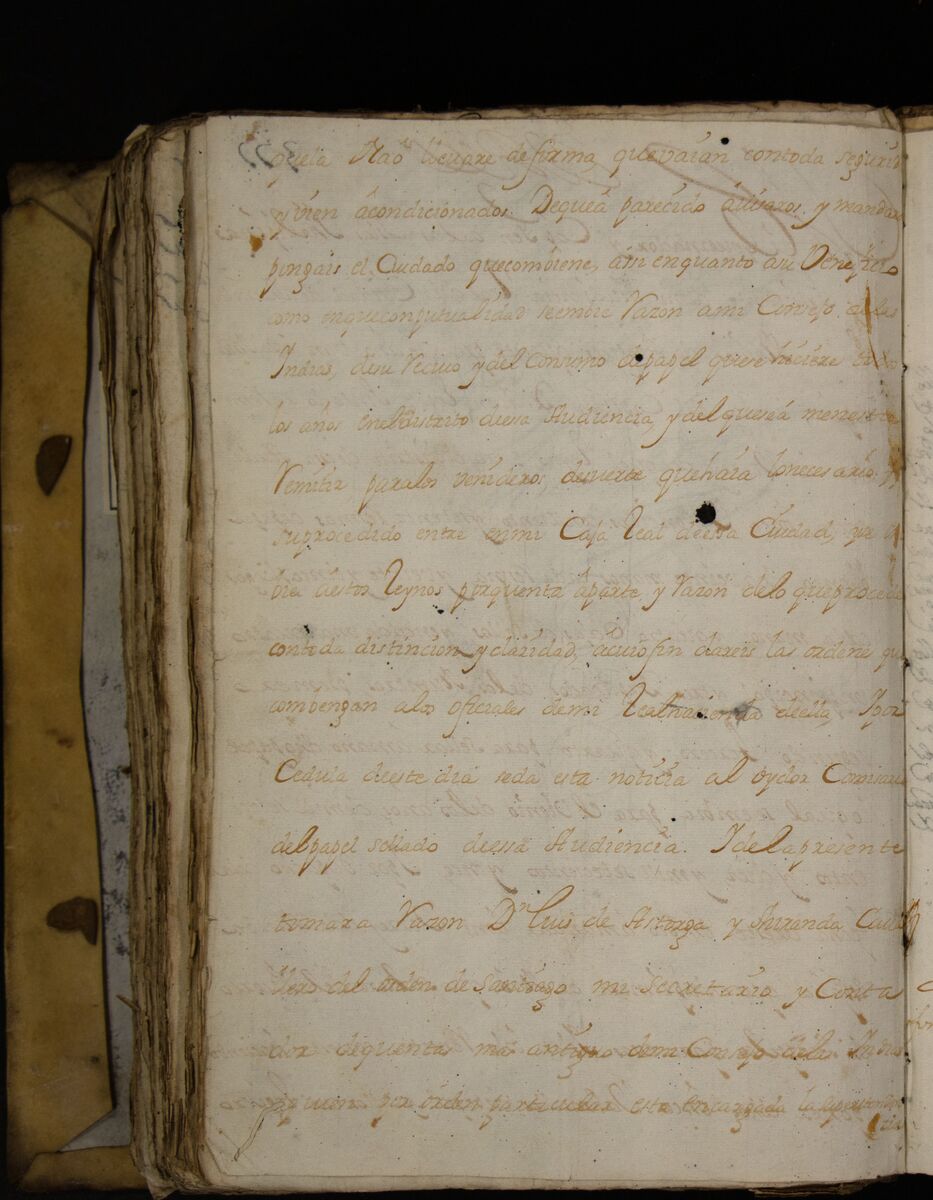 que la Nao lleuare de firma, que vaian contoda seguri
y vien acondicionados. Dequeá parecido auisaros, y mandar
pongais el Cuidado quecombiene, assi enquanto asu Veneficio
como enqueconputualidad seembie Razon ami Consejo delas
Indias, desu Reciuo y del Consumo depapel quese hiciere todos
los años enel distrito diessa Audiencia, y del queserá menester
Remitir paralos venideros, desuerte quehaia lonecesario, y
suprocedido entre enmi Caja Real deessa Ciudad,
destos Reynos porquenta áparte, y Razon delo queprocede
contoda distincion, y claridad, acuio fin dareis las ordenes que
combengan alos oficiales demi Realhacienda deella. Ypor
Cedula deeste dia seda esta noticia al oydor Comisario
delpapel sellado diessa Audiencia. Y dela presente
tomara Razon Dn. Luis de Astorga y Miranda Caua
llero del orden de Santiago mi Secretario y Conta
dor dequentas mas antiguo demi Consejo delas Indias
aquien por orden particular esta encargada la superinten
cia